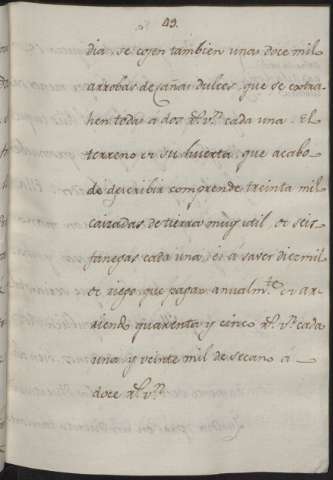 49.
dia se cojen tambien unas doce mil
arrobas de cañas dulces, que se extra-
hen todas a dos r.s v.n cada una. El
terreno de su huerta, que acabo
de describir comprende treinta mil
caizadas de tierra muy util, de seis
fanegas cada una, ei a saver diez mil
de riego que pagan anualm.te de ar-
riendo quarenta y cinco r.s v.n cada
una y veinte mil de secano a
doce r.s v.n